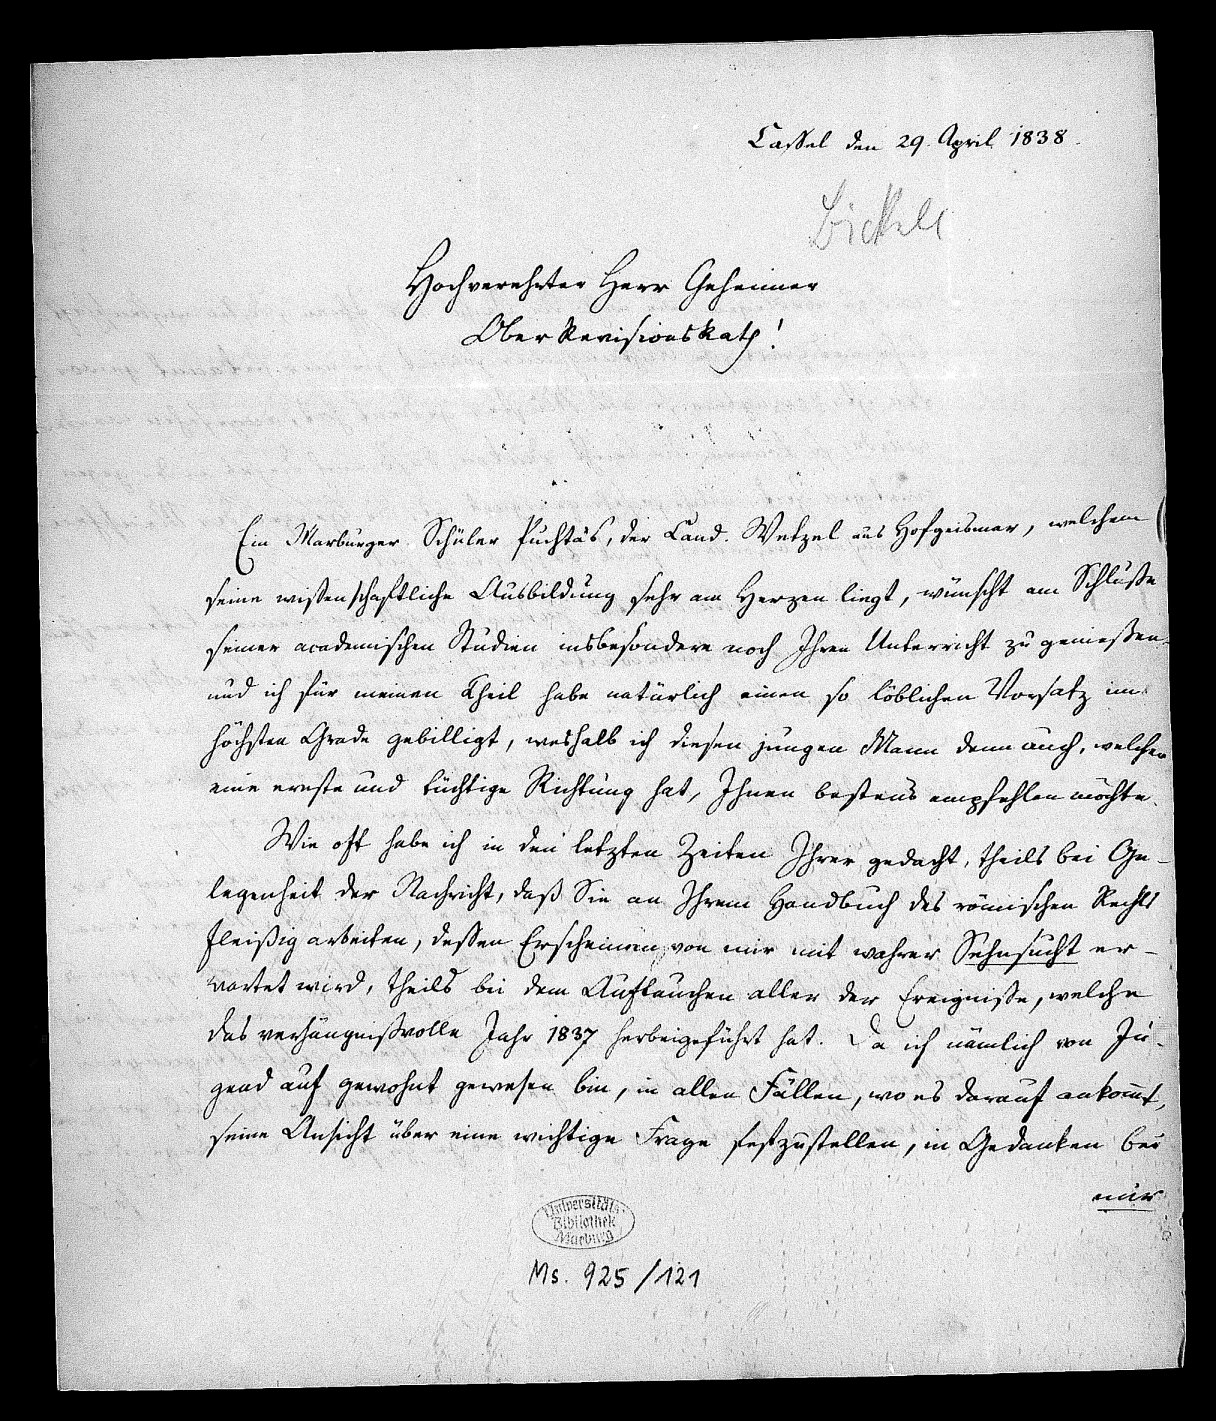 Cassel den 29. April 1838.
Bickell
Hochverehrter Herr Geheimer
OberRevisionsRath!
Ein Marburger Schüler Puchtas, der Cand. Wetzel aus Hofgeismar, welchem
seine wißenschaftliche Ausbildung sehr am Herzen liegt, wünscht am Schluße
seiner academischen Studien insbesondere noch Ihren Unterricht zu genießen
und ich für meinen Theil habe natürlich einen so löblichen Vorsatz im
höchsten Grade gebilligt, weshalb ich diesen jungen Mann denn auch, welcher
eine ernste und tüchtige Richtung hat, Ihnen bestens empfehlen möchte.
Wie oft habe ich in den letzten Zeiten Ihrer gedacht, theils bei Ge-
legenheit der Nachricht, daß Sie an Ihrem Handbuch des römischen Rechts
fleißig arbeiten, deßen Erscheinen von mir mit wahrer Sehnsucht er-
wartet wird, theils bei dem Auftauchen aller der Ereigniße, welche
das verhängnißvolle Jahr 1837 herbeigeführt hat. Da ich nämlich von Ju-
gend auf gewohnt gewesen bin, in allen Fällen, wo es darauf ankommt,
seine Ansicht über eine wichtige Frage festzustellen, in Gedanken bei
mir
Universitäts
Bibliothek
Marburg
Ms. 925/121